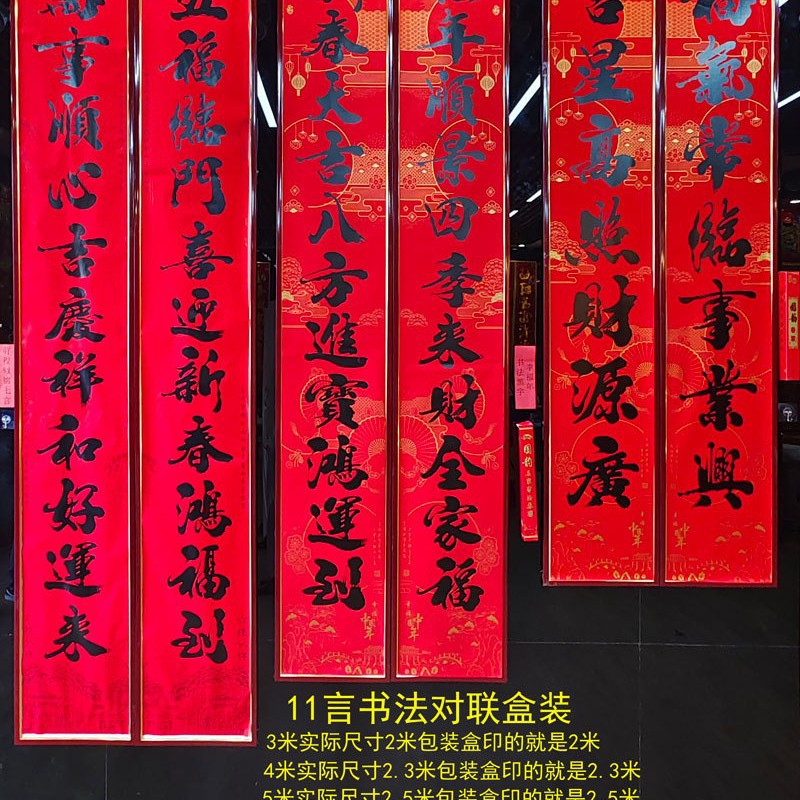 事順心吉慶祥和好運来
五福臨門喜迎新春鴻福到
春大吉八方進寶鴻運到
年順景四季来財全家福
吉星高照財源廣
福氣常臨事業興
幸福年
书法黑字
11言书法对联盒装
3米实际尺寸2米包装盒印的就是2米
4米实际尺寸2.3米包装盒印的就是2.3米
5米实际尺寸2.5米包装盒印的就是2.5米